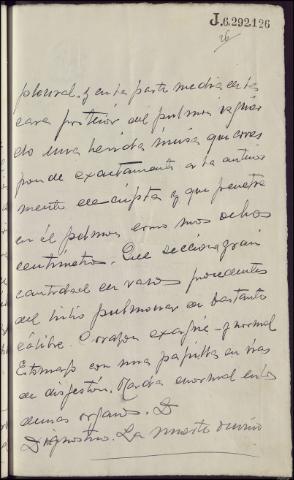 J.6.292.126
26
pleural. y en la parte media de la
cara posterior del pulmon izquier
do una herida incisa que corres
ponde exactamente a la anterior
mente descripta y que penetra
en el pulmon como unos ocho
centimetros. Que secciona gran
cantidad de vasos procedentes
del hilio pulmonar de bastante
calibre. Corazon exangüe y normal
Estomago con una papilla en vias
de digestión. Nada anormal en los
demas organos. D
Diagnostico. La muerte